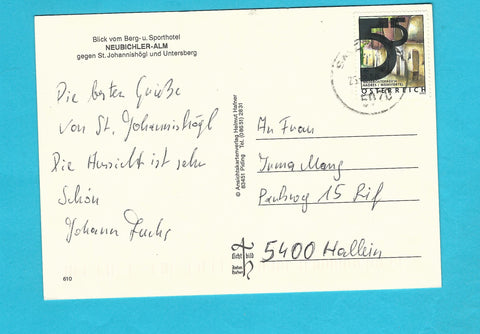 Blick vom Berg- u. Sporthotel
NEUBICHLER-ALM
gegen St. Johannishögl und Untersberg
Die besten Grüße
von St. Johannishögl
Die Aussicht ist sehr
Schön
Johanna Fuchs
610
© Ansichtskartenverlag Helmut Hafner
83451 Piding Tel. (08651) 2831
Licht bild
55
ÖSTERREICH
An Frau
Irma Mang
15 Rif
5400 Hallein